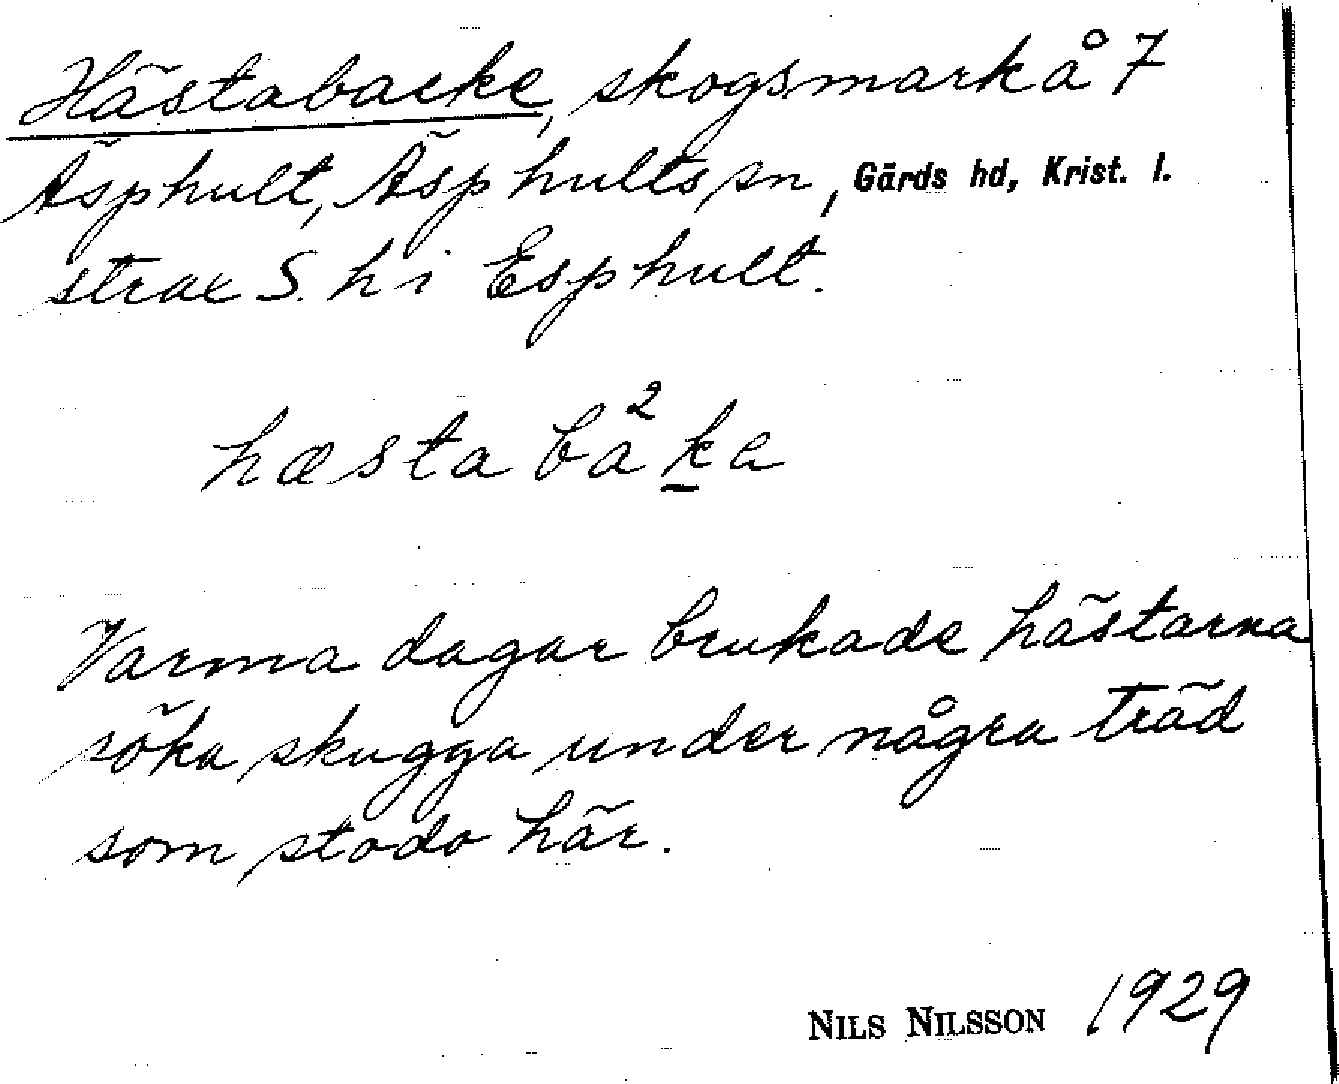 Hästabacke, skogsmark å 7
Äsphult, Äsphults sn, Gärds hd, Krist. l.
strax S. h i Esphult.
hæsta ba²ka
Varma dagar brukade hästarna
söka skugga under några träd
som stodo här.
NILS NILSSON 1929